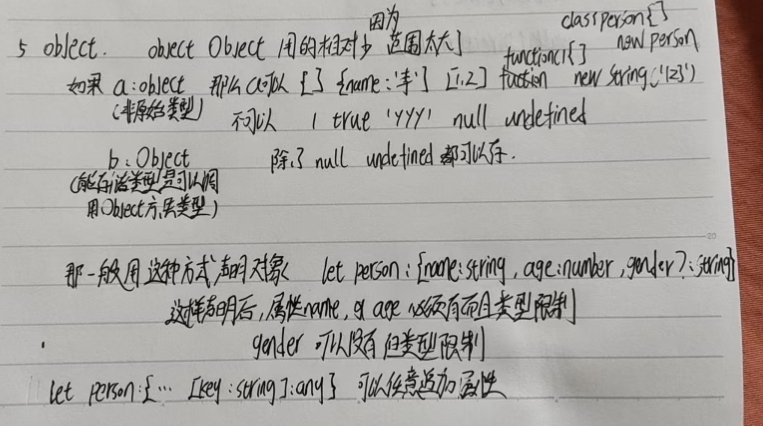 因为
class person{}
5 object. object Object 用的相对少 范围太大
function(){} new person
如果 a:object 那么a可以 {} {name:'丰'} [1,2] new String('123')
(非原始类型)
不可以 1 true 'yyy' null undefined
b:Object 除了 null undefined 都可以存.
(能存的类型是可以调
用Object方法类型)
20
那一般用这种方式声明对象 let person:{name:string, age:number, gender?:string}
这样声明后,属性name, age 必须有而且类型限制
gender 可以没有 但类型限制
let person:{… [key:string]:any} 可以任意追加属性